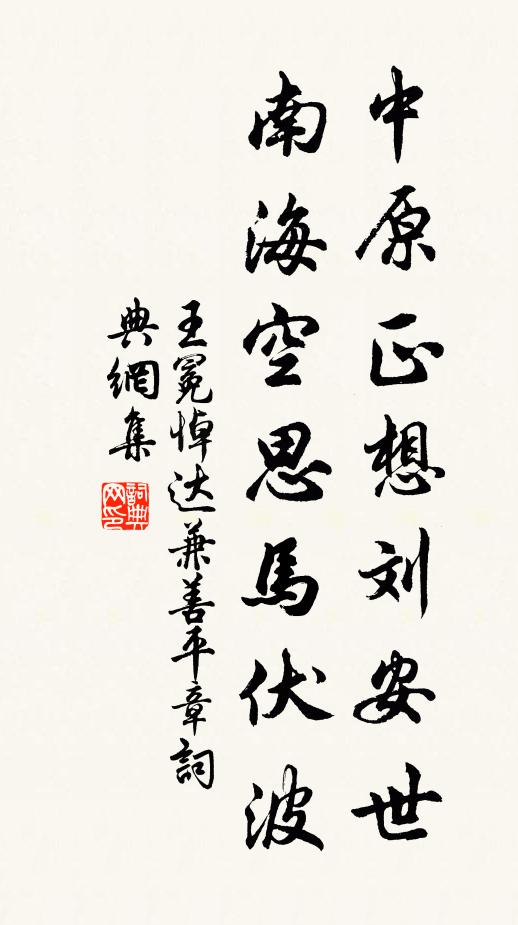 中原正想刘安世
南海空思馬伏波
王冕悼达兼善平章詞
典網集
詞典網印